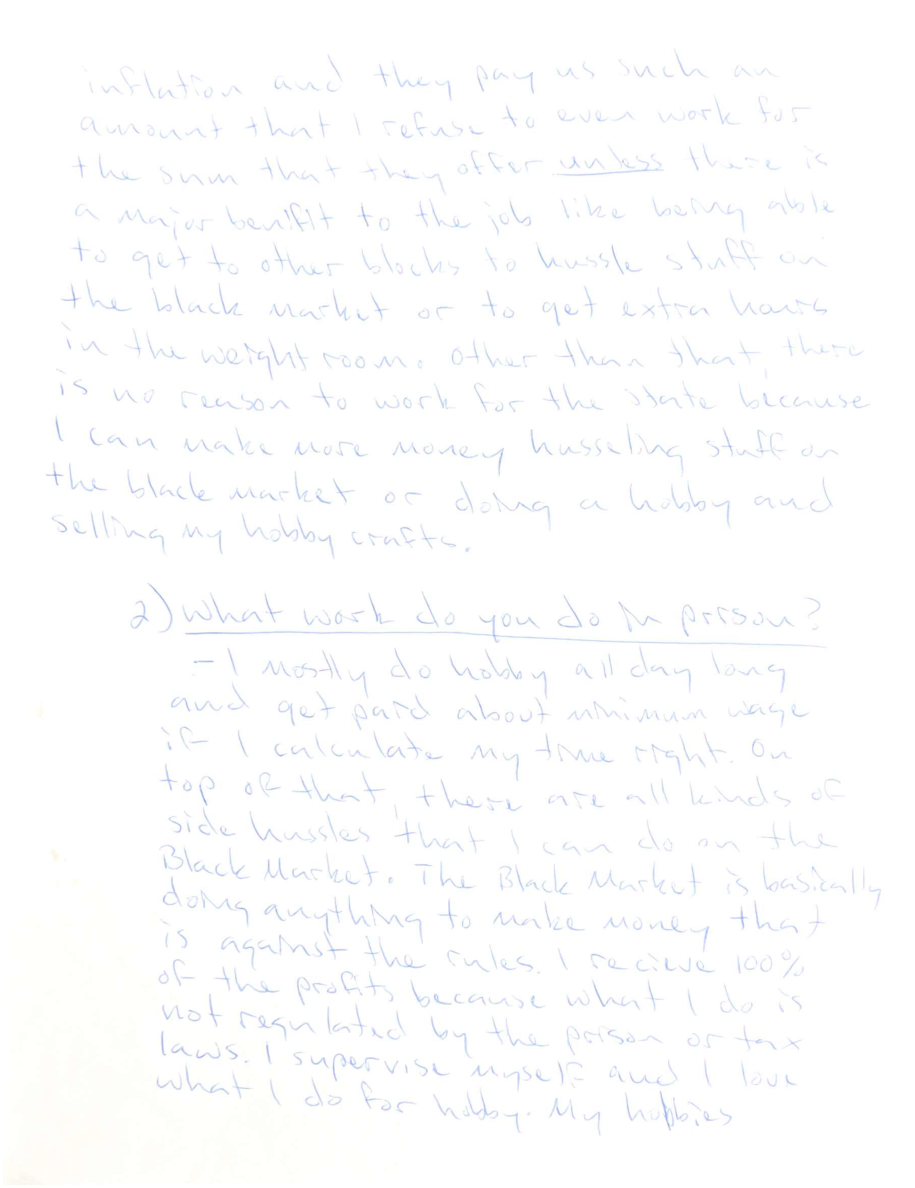 inflation and they pay us such an
amount that I refuse to even work for
the sum that they offer unless there is
a major benifit to the job like being able
to get to other blocks to hussle stuff on
the black market or to get extra hours
in the weight room. Other than that, there
is no reason to work for the state because
I can make more money husseling stuff on
the black market or doing a hobby and
selling my hobby crafts.
2) What work do you do in prison?
- I mostly do hobby all day long
and get paid about minimum wage
if I calculate my time right. On
top of that, there are all kinds of
side hussles that I can do on the
Black Market. The Black Market is basically
doing anything to make money that
is against the rules. I recieve 100%
of the profits because what I do is
not regulated by the prison or tax
laws. I supervise myself and I love
what I do for hobby. My hobbies